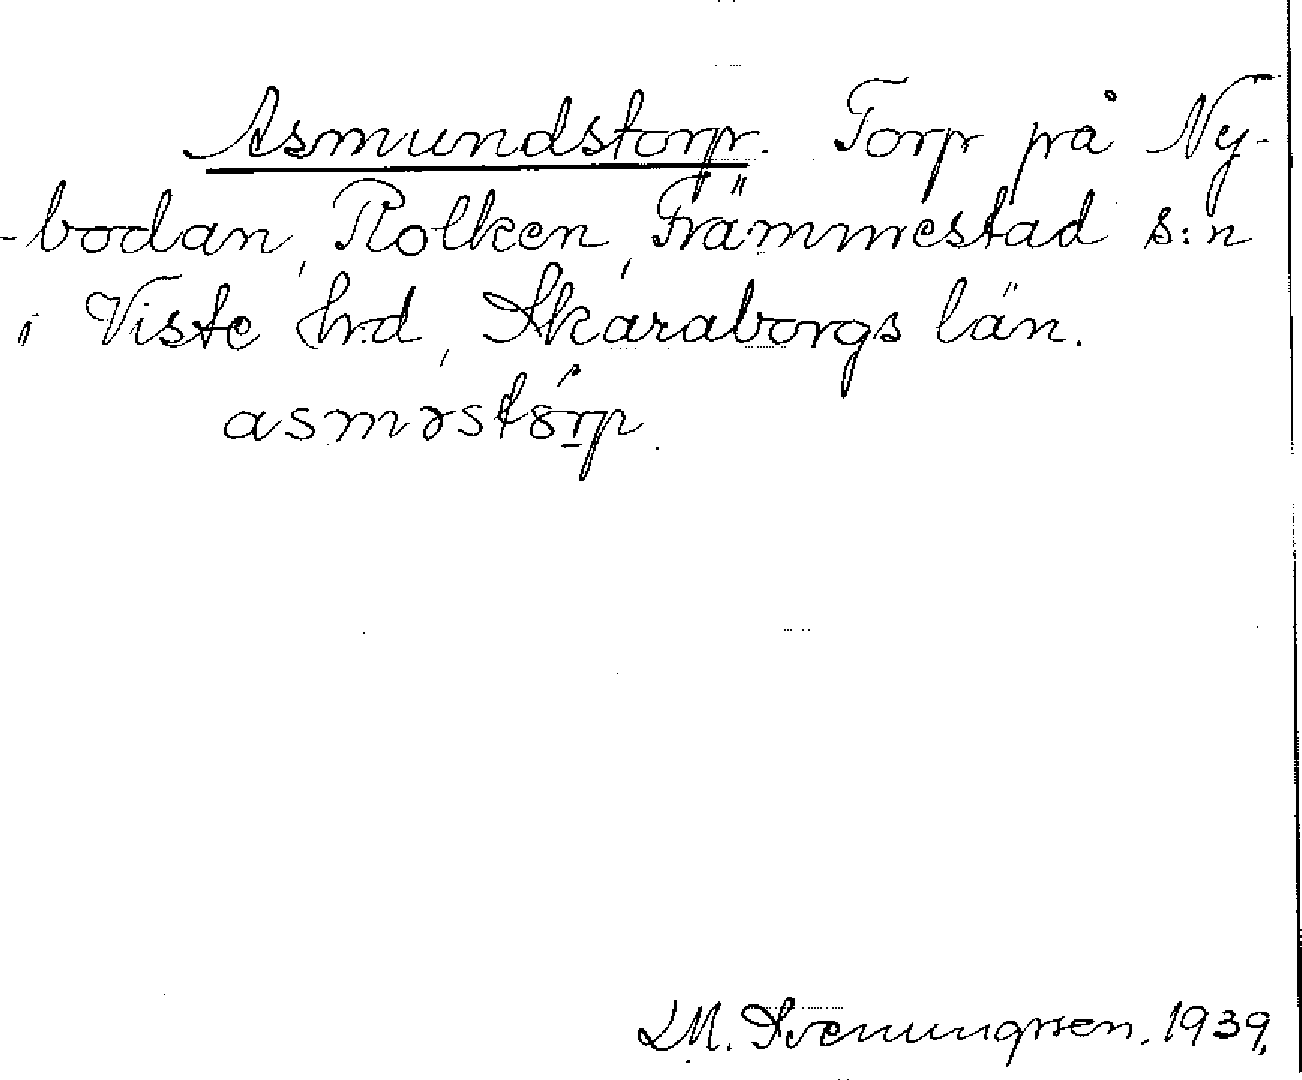 Asmundstorp. Torp på Ny-
-bodan, Rolken, Främmestad s:n
i Viste hrd, Skaraborgs län.
asməstórp.
L.M. Svenungsson. 1939.